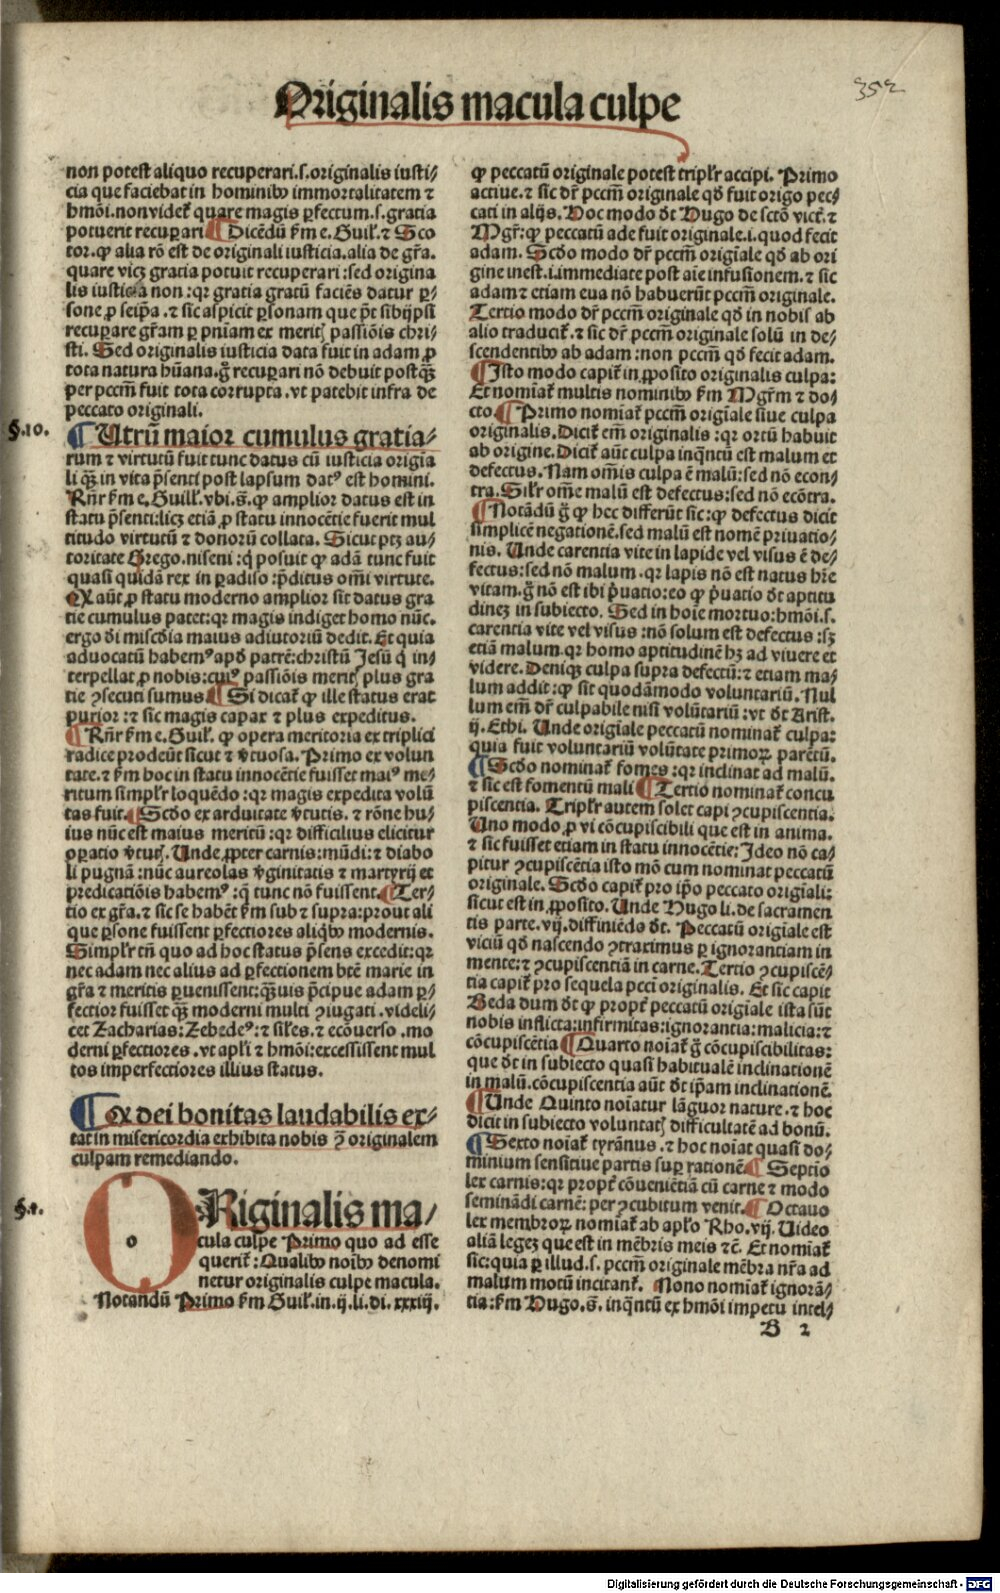 Originalis macula culpe
352
non potest aliquo recuperari.s.originalis iusti-
cia que faciebat in hominibꝰ immortalitatem ⁊
hmōi.non videt̄ quare magis ꝑfectum.s.gratia
potuerit recuꝑari ¶ Dicēdū ẜm e. Guil. ⁊ Sco
tor.ꝙ alia rō est de originali iusticia.alia de gr̄a.
quare vicꝫ gratia potuit recuperari:sed origina
lis iusticia non:qꝛ gratia gratū faciēs datur ꝑ-
sone ꝓ seip̄a.⁊ sic aspicit ꝑsonam que pōt sibijpsi
recuꝑare gr̄am ꝑ pn̄iam ex meritꝭ passiōis chri-
sti. Sed originalis iusticia data fuit in adam ꝓ
tota natura hūana.ḡ recuꝑari nō debuit postꝙ̄
per pccm̄ fuit tota corrupta.vt patebit infra de
peccato originali.
§.10.
¶ Utrū maior cumulus gratia-
rum ⁊ virtutū fuit tunc datus cū iusticia origīa
li ꝙ̄ in vita p̄senti post lapsum datꝰ est homini.
Rn̄r ẜm e. Guill. vbi.s̄. ꝙ amplior datus est in
statu p̄senti:licꝫ etiā ꝓ statu innocētie fuerit mul
titudo virtutū ⁊ donorū collata. Sicut ptꝫ au-
toritate Grego.niseni:q̇ posuit ꝙ adā tunc fuit
quasi quidā rex in ꝑadiso:p̄ditus om̄i virtute.
Ex aūt ꝓ statu moderno amplior sit datus gra
tie cumulus patet:qꝛ magis indiget homo nūc.
ergo di miscd̄ia maius adiutoriū dedit. Et quia
aduocatū habemꝰ apd̄ patrē:christū Jesū q̇ in-
terpellat ꝓ nobis:cuiꝰ passiōis meritꝭ plus gra
tie ꝯsecuti sumus ¶ Si dicat̄ ꝙ ille status erat
purior:⁊ sic magis capax ⁊ plus expeditus.
¶ Rn̄r ẜm e. Guil. ꝙ opera meritoria ex triplici
radice prodeūt sicut ⁊ v̄tuosa. Primo ex volun
tate.⁊ ẜm hoc in statu innocētie fuisset maiꝰ me-
ritum simplr̄ loquēdo:qꝛ magis expedita volū
tas fuit. ¶ Scd̄o ex arduitate v̄tutis. ⁊ rōne hu-
ius nūc est maius meritū:qꝛ difficilius elicitur
oꝑatio v̄tutꝭ. Unde ꝓpter carnis:mūdi:⁊ diabo
li pugnā:nūc aureolas v̄ginitatis ⁊ martyrij et
predicatiōis habemꝰ:q̄ tunc nō fuissent. ¶ Ter-
tio ex gr̄a.⁊ sic se habēt ẜm sub ⁊ supra:prout ali
que ꝑsone fuissent ꝑfectiores aliqbꝰ modernis.
Simplr̄ tn̄ quo ad hoc status p̄sens excedit:qꝛ
nec adam nec alius ad ꝑfectionem btē marie in
gr̄a ⁊ meritis ꝑuenissent:ꝙ̄uis p̄cipue adam ꝑ-
fectior fuisset ꝙ̄ moderni multi ꝯiugati.videli-
cet Zacharias:Zebedeꝰ:⁊ sil̄es.⁊ ecōuerso.mo
derni ꝑfectiores.vt apl̄i ⁊ hmōi:excessissent mul
tos imperfectiores illius status.
¶ Ex dei bonitas laudabilis ex-
tat in misericordia exhibita nobis ꝫ originalem
culpam remediando.
§.1.
ORiginalis ma-
cula culpe Primo quo ad esse
querit̄:Qualibꝰ noibꝰ denomi
netur originalis culpe macula.
Notandū Primo ẜm Guil.in.ij.li.di.xxxiij.
ꝙ peccatū originale potest triplr̄ accipi. Primo
actiue.⁊ sic dr̄ pccm̄ originale qd̄ fuit origo pec-
cati in alijs. Hoc modo dt̄ Hugo de sctō vict̄.⁊
Mgr̄:ꝙ peccatū ade fuit originale.i.quod fecit
adam. Scd̄o modo dr̄ pccm̄ origīale qd̄ ab ori
gine inest.i.immediate post aīe infusionem.⁊ sic
adam ⁊ etiam eua nō habuerūt pccm̄ originale.
Tertio modo dr̄ pccm̄ originale qd̄ in nobis ab
alio traducit̄.⁊ sic dr̄ pccm̄ originale solū in de-
scendentibꝰ ab adam:non pccm̄ qd̄ fecit adam.
¶ Isto modo capit̄ in ꝓposito originalis culpa:
Et noīat̄ multis nominibꝰ ẜm Mgr̄m ⁊ do-
cto. ¶ Primo noīat̄ pccm̄ origīale siue culpa
originalis. Dicit̄ em̄ originalis:qꝛ ortū habuit
ab origine. Dicit̄ aūt culpa inqntū est malum et
defectus. Nam om̄is culpa ē malū:sed nō econ-
tra. Silr̄ om̄e malū est defectus:sed nō ecōtra.
¶ Notādū ḡ ꝙ hec differūt sic:ꝙ defectus dicit
simplicē negationē.sed malū est nomē priuatio-
nis. Unde carentia vite in lapide vel visus ē de-
fectus:sed nō malum.qꝛ lapis nō est natus hr̄e
vitam.ḡ nō est ibi p̄uatio:eo ꝙ p̄uatio dt̄ aptitu
dinez in subiecto. Sed in hoīe mortuo:hmōi.s.
carentia vite vel visus:nō solum est defectus:sꝫ
etiā malum.qꝛ homo aptitudinē hꝫ ad viuere et
videre. Deniqꝫ culpa supra defectū:⁊ etiam ma-
lum addit:ꝙ sit quodāmodo voluntariū. Nul
lum em̄ dr̄ culpabile nisi volūtariū:vt dt̄ Arist.
ij. Ethi. Unde origīale peccatū nominat̄ culpa:
quia fuit voluntariū volūtate primoꝝ parētū.
¶ Scd̄o nominat̄ fomes:qꝛ inclinat ad malū.
⁊ sic est fomentū mali ¶ Tertio nominat̄ concu
piscentia. Triplr̄ autem solet capi ꝯcupiscentia.
Uno modo ꝓ vi cōcupiscibili que est in anima.
⁊ sic fuisset etiam in statu innocētie:Ideo nō ca-
pitur ꝯcupiscētia isto mō cum nominat peccatū
originale. Scd̄o capit̄ pro ip̄o peccato origīali:
sicut est in ꝓposito. Unde Hugo li.de sacramen
tis parte.vij.diffiniēdo dt̄. Peccatū originale est
viciū qd̄ nascendo ꝯtraximus ꝑ ignorantiam in
mente:⁊ ꝯcupiscentiā in carne. Tertio ꝯcupiscē-
tia capit̄ pro sequela pccī originalis. Et sic capit
Beda dum dt̄ ꝙ propt̄ peccatū origīale ista sūt
nobis inflicta:infirmitas:ignorantia:malicia:⁊
cōcupiscētia ¶ Quarto noīat̄ ḡ cōcupiscibilitas:
que dt̄ in subiecto quasi habitualē inclinationē
in malū.cōcupiscentia aūt dt̄ ip̄am inclinationē.
¶ Unde Quinto noīatur lāguor nature.⁊ hoc
dicit in subiecto voluntatꝭ difficultatē ad bonū.
¶ Sexto noīat̄ tyrānus.⁊ hoc noīat quasi do-
minium sensitiue partis suꝑ rationē ¶ Septīo
lex carnis:qꝛ propt̄ cōuenientiā cū carne ⁊ modo
seminādi carnē:per ꝯcubitum venit. ¶ Octauo
lex membroꝝ noīat̄ ab apl̄o Rho.vij. Uideo
aliā legeꝫ que est in mēbris meis ⁊c̄. Et noīat̄
sic:quia ꝑ illud.s.pccm̄ originale mēbra nr̄a ad
malum motū incitant̄. Nono noīat̄ ignorā-
tia:ẜm Hugo.s̄.inqntū ex hmōi impetu intel-
B 2
Digitalisierung gefördert durch die Deutsche Forschungsgemeinschaft - DFG